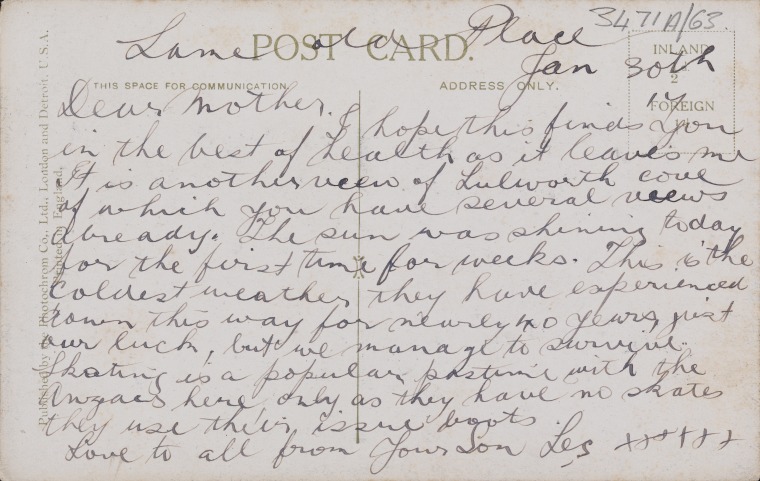 3471A/63.
Same old Place
POST CARD.
Jan 30th
17
INLAND
2
FOREIGN
THIS SPACE FOR COMMUNICATION.
ADDRESS ONLY.
Dear Mother. I hope this finds you
in the best of health as it leaves me
It is another view of Lulworth cove
of which you have several views
already. The sun was shining today
for the first time for weeks. This is the
coldest weather they have experienced
down this way for nearly 20 years, just
our luck, but we manage to survive.
Skating is a popular pastime with the
Anzacs here only as they have no skates
they use their issue boots.
Love to all from Your Son Les xxxxxx
Published by the Photochrom Co., Ltd., London and Detroit, U.S.A.
Printed in England.